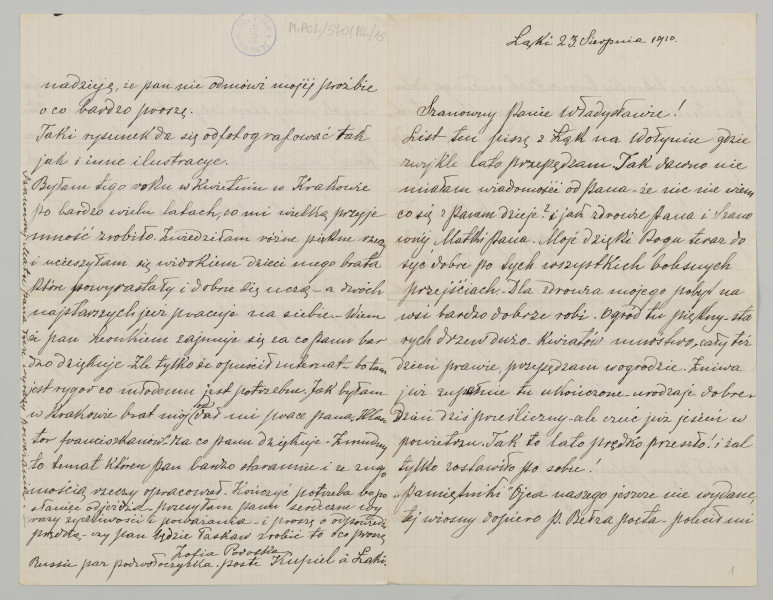 Łąki 23. Sierpnia 1910.
Szanowny Panie Władysławie!
List ten piszę z Łąk na Wołyniu gdzie
zwykle lato przepędzam. Tak dawno nie
miałam wiadomości od Pana - że nic nie wiem
co się z Panem dzieje? i jak zdrowie Pana i Szano
wnéj Matki Pana. Moje dzięki Bogu teraz do
syć dobre po tych wszystkich bolesnych
przejściach. Dla zdrowia mojego pobyt na
wsi bardzo dobrze robi. Ogród tu piękny - sta
rych drzew dużo. Kwiatów mnóstwo, cały też
dzień prawie, przepędzam w ogrodzie. Żniwa
już zupełnie tu ukończone - urodzaje dobre -
Dzień dziś prześliczny - ale czuć już jesień w
powietrzu. Tak to lato prędko przeszło! i żal
tylko zostawiło po sobie!
"Pamiętniki" Ojca naszego jeszcze nie wydane,
téj wiosny dopiero p. Bełza poeta - mi
nadzieją, że pan nie odmówi mojéj proźbie
o co bardzo proszę.
Taki rysunek da się odfotografować tak
jak i inne ilustracye.
Byłam tego roku w Kwietniu w Krakowie
po bardzo wielu latach, co mi wielką przyje
mność zrobiło. Zwiedziłam różne piękne rzeczy
i ucieszyłam się widokiem dzieci mego brata
które powyrastały i dobrze się uczą - a dwóch
najstarszych już pracuje na siebie - Wiem
że pan Henrykiem zajmuje się za co panu bar
dzo dziękuje. Źle tylko że opuścił internat - bo tam
jest rygor co młodemu jest potrzebne. Jak byłam
w Krakowie brat mój dał mi pracę pana, Klasz
tor franciszkanów za co panu dziękuje -
to temat który pan bardzo starannie i ze znajo
mością rzeczy opracował. Kończyć potrzeba bo
odjeżdża - przesyłam panu serdeczne wy
razy życzliwości i poważania - i proszę o odpowiedź
prędką - czy pan będzie łaskaw zrobić to o co proszę
Zofia Podoska
Russie par Podwołoczyska. poste Kupiel à Łąki.